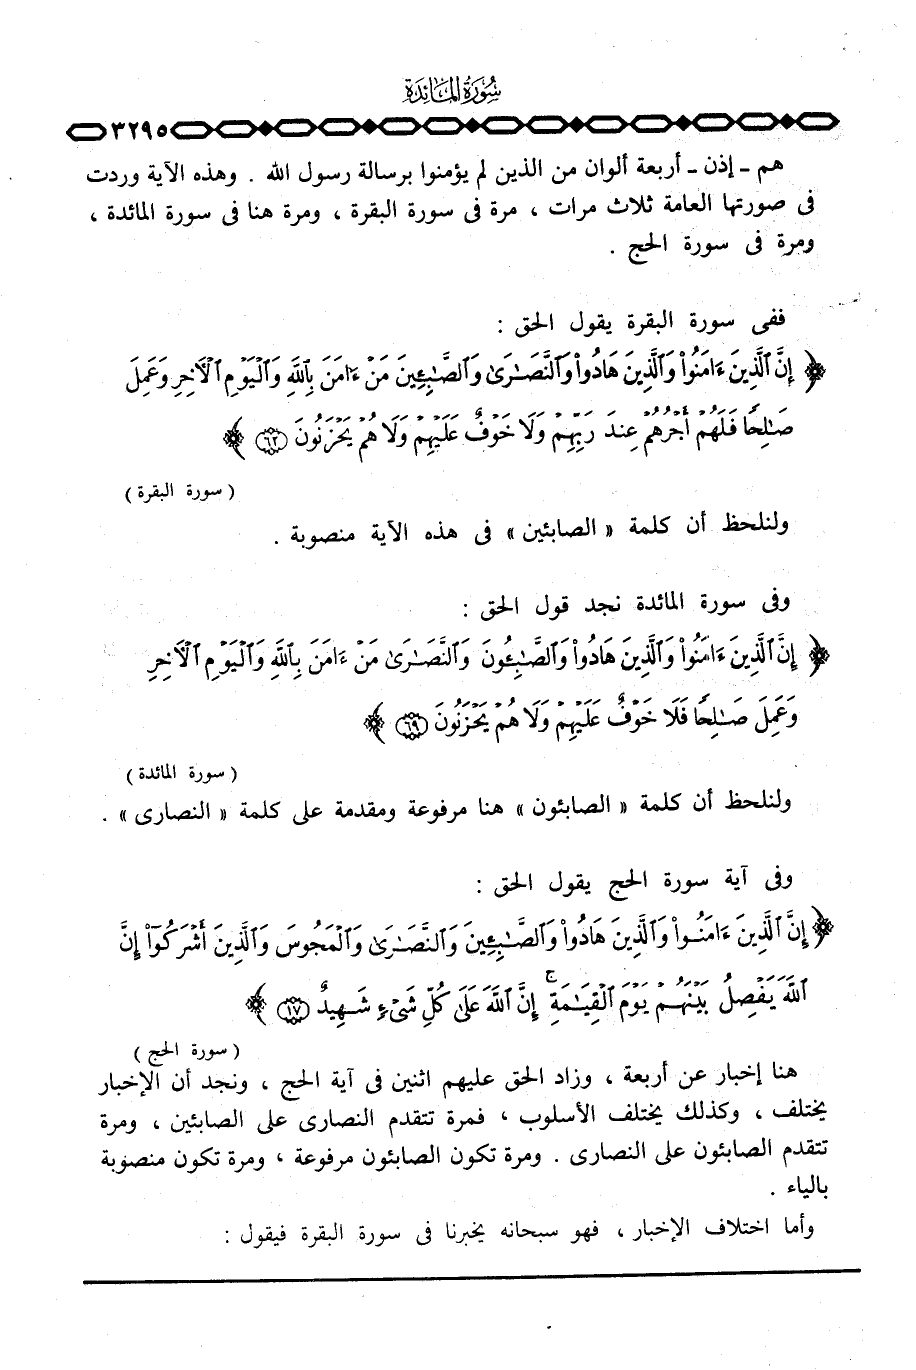 سُورَةُ المَائِدَة
٣٢٩٥
هم ـ إذن ـ أربعة ألوان من الذين لم يؤمنوا برسالة رسول الله . وهذه الآية وردت
فى صورتها العامة ثلاث مرات ، مرة فى سورة البقرة ، ومرة هنا فى سورة المائدة ،
ومرة فى سورة الحج .
ففى سورة البقرة يقول الحق :
﴿ إِنَّ ٱلَّذِينَ ءَامَنُوا۟ وَٱلَّذِينَ هَادُوا۟ وَٱلنَّصَـٰرَىٰ وَٱلصَّـٰبِـِٔينَ مَنْ ءَامَنَ بِٱللَّهِ وَٱلْيَوْمِ ٱلْآخِرِ وَعَمِلَ
صَـٰلِحًا فَلَهُمْ أَجْرُهُمْ عِندَ رَبِّهِمْ وَلَا خَوْفٌ عَلَيْهِمْ وَلَا هُمْ يَحْزَنُونَ ٦٢ ﴾
( سورة البقرة )
ولنلحظ أن كلمة « الصابئين » فى هذه الآية منصوبة .
وفى سورة المائدة نجد قول الحق :
﴿ إِنَّ ٱلَّذِينَ ءَامَنُوا۟ وَٱلَّذِينَ هَادُوا۟ وَٱلصَّـٰبِـُٔونَ وَٱلنَّصَـٰرَىٰ مَنْ ءَامَنَ بِٱللَّهِ وَٱلْيَوْمِ ٱلْآخِرِ
وَعَمِلَ صَـٰلِحًا فَلَا خَوْفٌ عَلَيْهِمْ وَلَا هُمْ يَحْزَنُونَ ٦٩ ﴾
( سورة المائدة )
ولنلحظ أن كلمة « الصابئون » هنا مرفوعة ومقدمة على كلمة « النصارى » .
وفى آية سورة الحج يقول الحق :
﴿ إِنَّ ٱلَّذِينَ ءَامَنُوا۟ وَٱلَّذِينَ هَادُوا۟ وَٱلصَّـٰبِـِٔينَ وَٱلنَّصَـٰرَىٰ وَٱلْمَجُوسَ وَٱلَّذِينَ أَشْرَكُوٓا۟ إِنَّ
ٱللَّهَ يَفْصِلُ بَيْنَهُمْ يَوْمَ ٱلْقِيَـٰمَةِ ۚ إِنَّ ٱللَّهَ عَلَىٰ كُلِّ شَىْءٍ شَهِيدٌ ١٧ ﴾
( سورة الحج )
هنا إخبار عن أربعة ، وزاد الحق عليهم اثنين فى آية الحج ، ونجد أن الإخبار
يختلف ، وكذلك يختلف الأسلوب ، فمرة تتقدم النصارى على الصابئين ، ومرة
تتقدم الصابئون على النصارى . ومرة تكون الصابئون مرفوعة ، ومرة تكون منصوبة
بالياء .
وأما اختلاف الإخبار ، فهو سبحانه يخبرنا فى سورة البقرة فيقول :